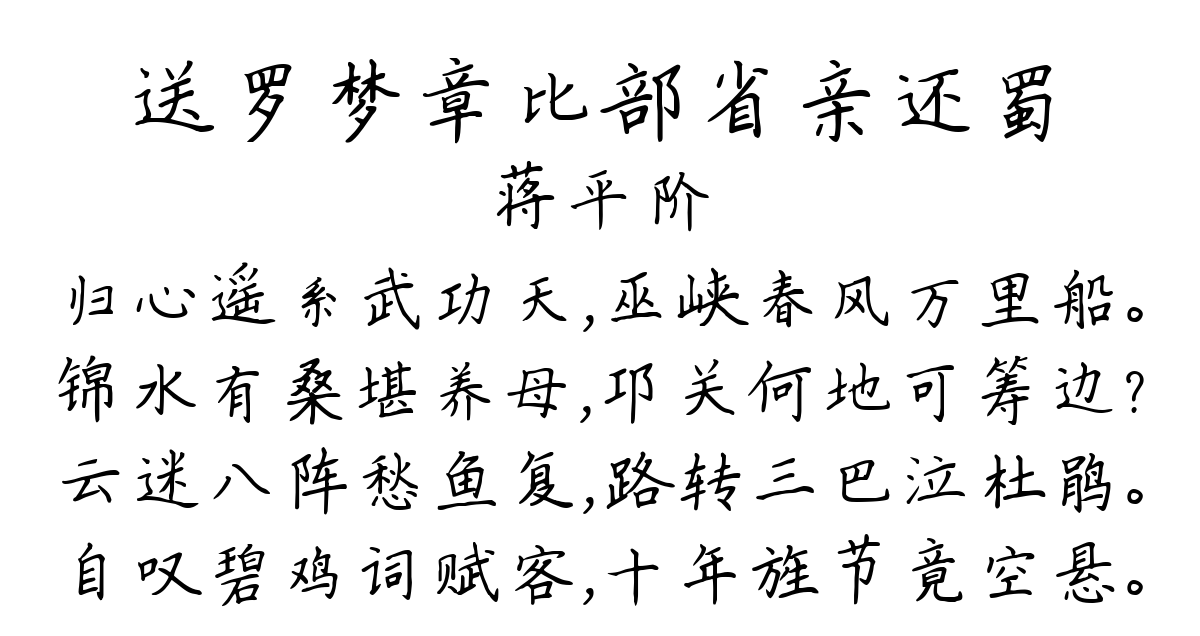 送罗梦章比部省亲还蜀
蒋平阶
归心遥系武功天,巫峡春风万里船。
锦水有桑堪养母,邛关何地可筹边?
云迷八阵愁鱼复,路转三巴泣杜鹃。
自叹碧鸡词赋客,十年旌节竟空悬。